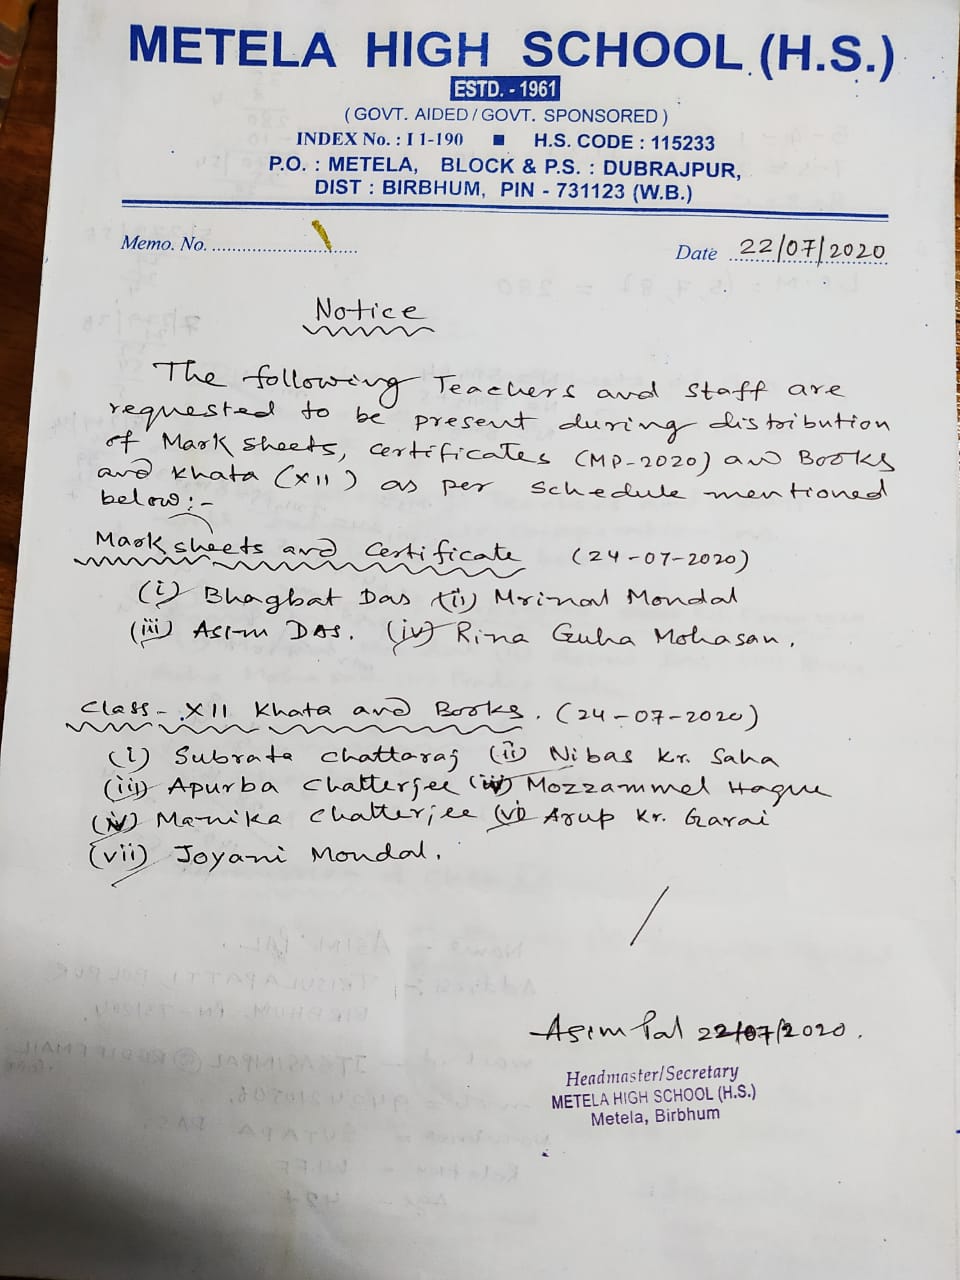 METELA HIGH SCHOOL (H.S.)
ESTD. - 1961
(GOVT. AIDED / GOVT. SPONSORED)
INDEX No. : I 1-190 ■ H.S. CODE : 115233
P.O. : METELA, BLOCK & P.S. : DUBRAJPUR,
DIST : BIRBHUM, PIN - 731123 (W.B.)
Memo. No. ............................ Date 22/07/2020
Notice
The following Teachers and staff are
requested to be present during distribution
of Mark sheets, certificates (MP-2020) and Books
and Khata (XII) as per schedule mentioned
below:-
Mark sheets and Certificate (24-07-2020)
(i) Bhagbat Das (ii) Mrinal Mondal
(iii) Asim DAS. (iv) Rina Guha Mohasan.
Class- XII Khata and Books. (24-07-2020)
(i) Subrata Chattaraj (ii) Nibas Kr. Saha
(iii) Apurba Chatterjee (iv) Mozzammel Haque
(v) Manika Chatterjee (vi) Arup Kr. Garai
(vii) Joyani Mondal.
Asim Pal 22/07/2020.
Headmaster/Secretary
METELA HIGH SCHOOL (H.S.)
Metela, Birbhum